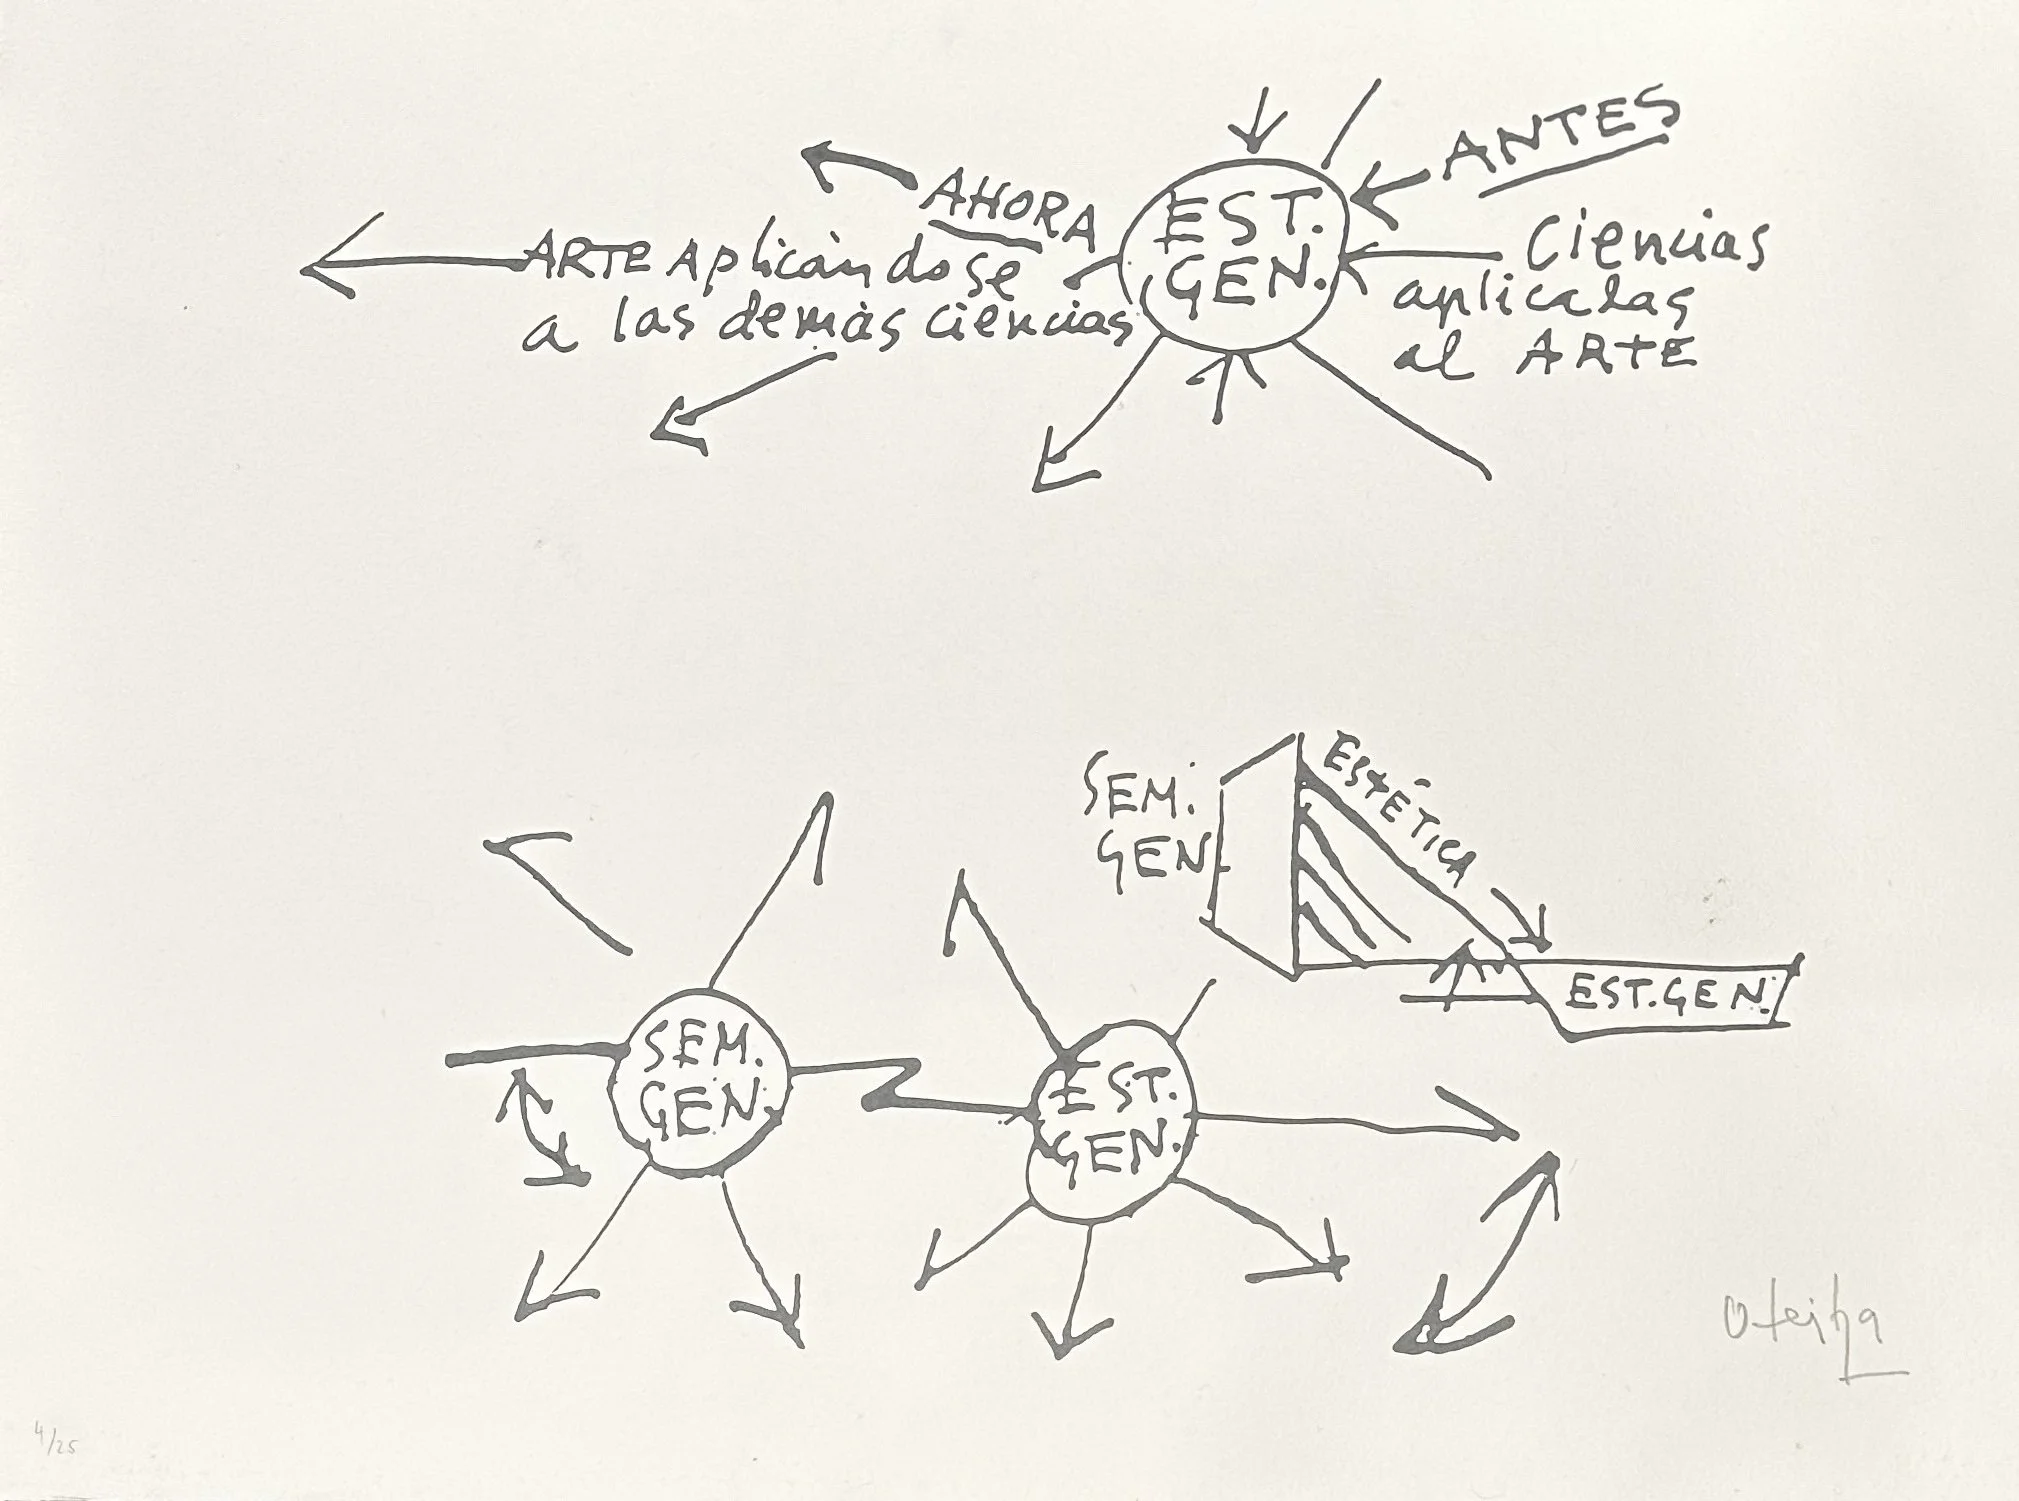 ANTES
AHORA
EST.
GEN.
ARTE Aplicàndose
a las demàs ciencias
Ciencias
aplicadas
al ARTE
SEM.
GEN.
ESTÉTICA
EST. GEN.
SEM.
GEN.
EST.
GEN.
oteiza
4/25